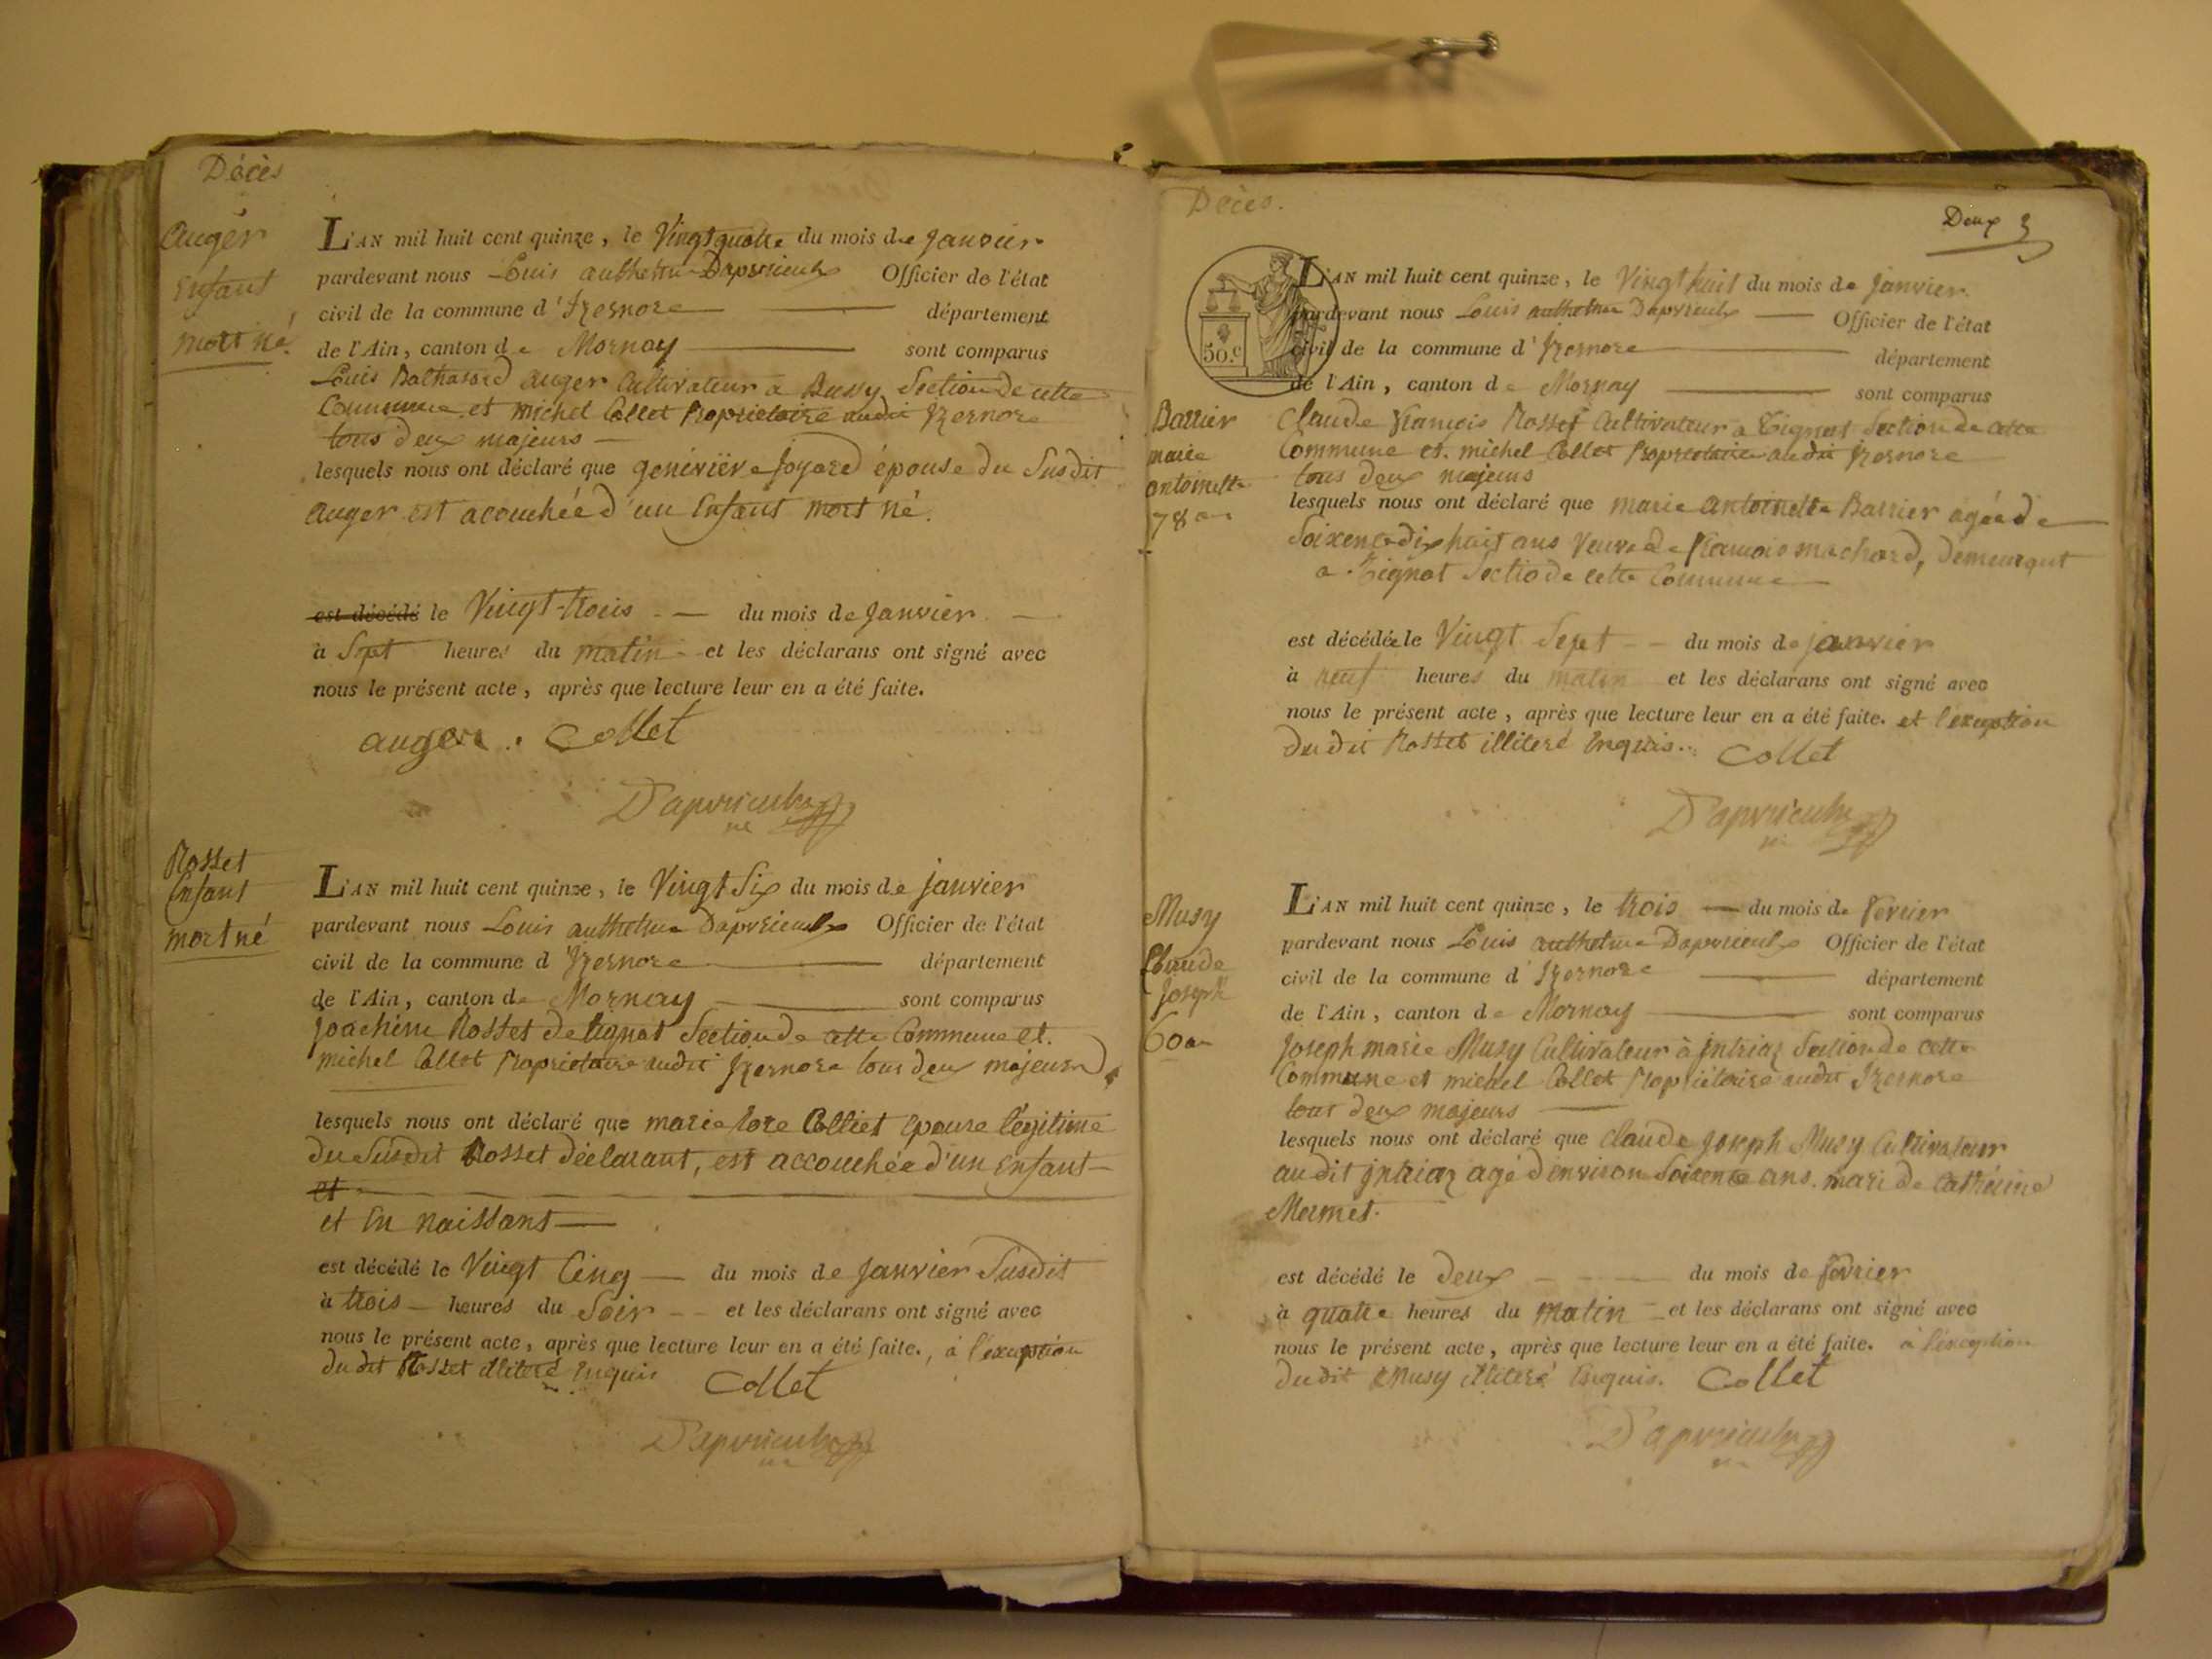 Décès
Auger
Enfant
mort né.
L'AN mil huit cent quinze, le Vingt quatre du mois de Janvier
pardevant nous Louis anthelme Dapvrieulx Officier de l'état
civil de la commune d'Izernore département
de l'Ain, canton de Mornay sont comparus
Louis Balthasard auger Cultivateur a Bussy Section de cette
Commune et michel Collet Propriétaire audit Izernore
tous deux majeurs
lesquels nous ont déclaré que geneviève Joyard épouse du Susdit
auger est acouchée d'un Enfant mort né.
est décédé le Vingt-trois du mois de Janvier
à Sept heures du matin et les déclarans ont signé avec
nous le présent acte, après que lecture leur en a été faite.
auger. Collet
Dapvrieulx
Rosset
Enfant
mort né
L'AN mil huit cent quinze, le Vingt Six du mois de janvier
pardevant nous Louis anthelme Dapvrieulx Officier de l'état
civil de la commune d'Izernore département
de l'Ain, canton de Mornay sont comparus
Joachim Rosset de tignat Section de cette Commune et
michel Collet Propriétaire audit Izernore tous deux majeurs
lesquels nous ont déclaré que marie Collet épouse légitime
du Susdit Rosset déclarant, est accouchée d'un Enfant
et
et En naissant
est décédé le Vingt Cinq du mois de Janvier Susdit
à trois heures du Soir et les déclarans ont signé avec
nous le présent acte, après que lecture leur en a été faite., à l'exception
du dit Rosset illiteré Enquis Collet
Dapvrieulx
Décès.
Deux
50.c
L'AN mil huit cent quinze, le Vingt huit du mois de Janvier
pardevant nous Louis anthelme Dapvrieulx Officier de l'état
civil de la commune d'Izernore département
de l'Ain, canton de Mornay sont comparus
Barrier
marie
antoinette
78 an
Claude François Rosset Cultivateur a Tignat Section de cette
Commune et michel Collet Propriétaire audit Izernore
tous deux majeurs
lesquels nous ont déclaré que marie antoinette Barrier agée de
Soixente dix huit ans Veuve de François machard, Demeurant
a Tignat Sectio de cette Commune
est décédée le Vingt Sept du mois de janvier
à neuf heures du matin et les déclarans ont signé avec
nous le présent acte, après que lecture leur en a été faite. et l'exception
du dit Rosset illiteré Enquis. Collet
Dapvrieulx
Musy
Claude
Joseph
60 an
L'AN mil huit cent quinze, le trois du mois de fevrier
pardevant nous Louis anthelme Dapvrieulx Officier de l'état
civil de la commune d'Izernore département
de l'Ain, canton de Mornay sont comparus
Joseph marie Musy Cultivateur à Intriaz Section de cette
Commune et michel Collet Propriétaire audit Izernore
tous deux majeurs
lesquels nous ont déclaré que claude Joseph Musy Cultivateur
au dit intriaz agé d'environ Soixente ans. mari de Cathérine
Mermet.
est décédé le deux du mois de fevrier
à quatre heures du matin et les déclarans ont signé avec
nous le présent acte, après que lecture leur en a été faite. à l'exception
du dit Musy illiteré Enquis. Collet
Dapvrieulx